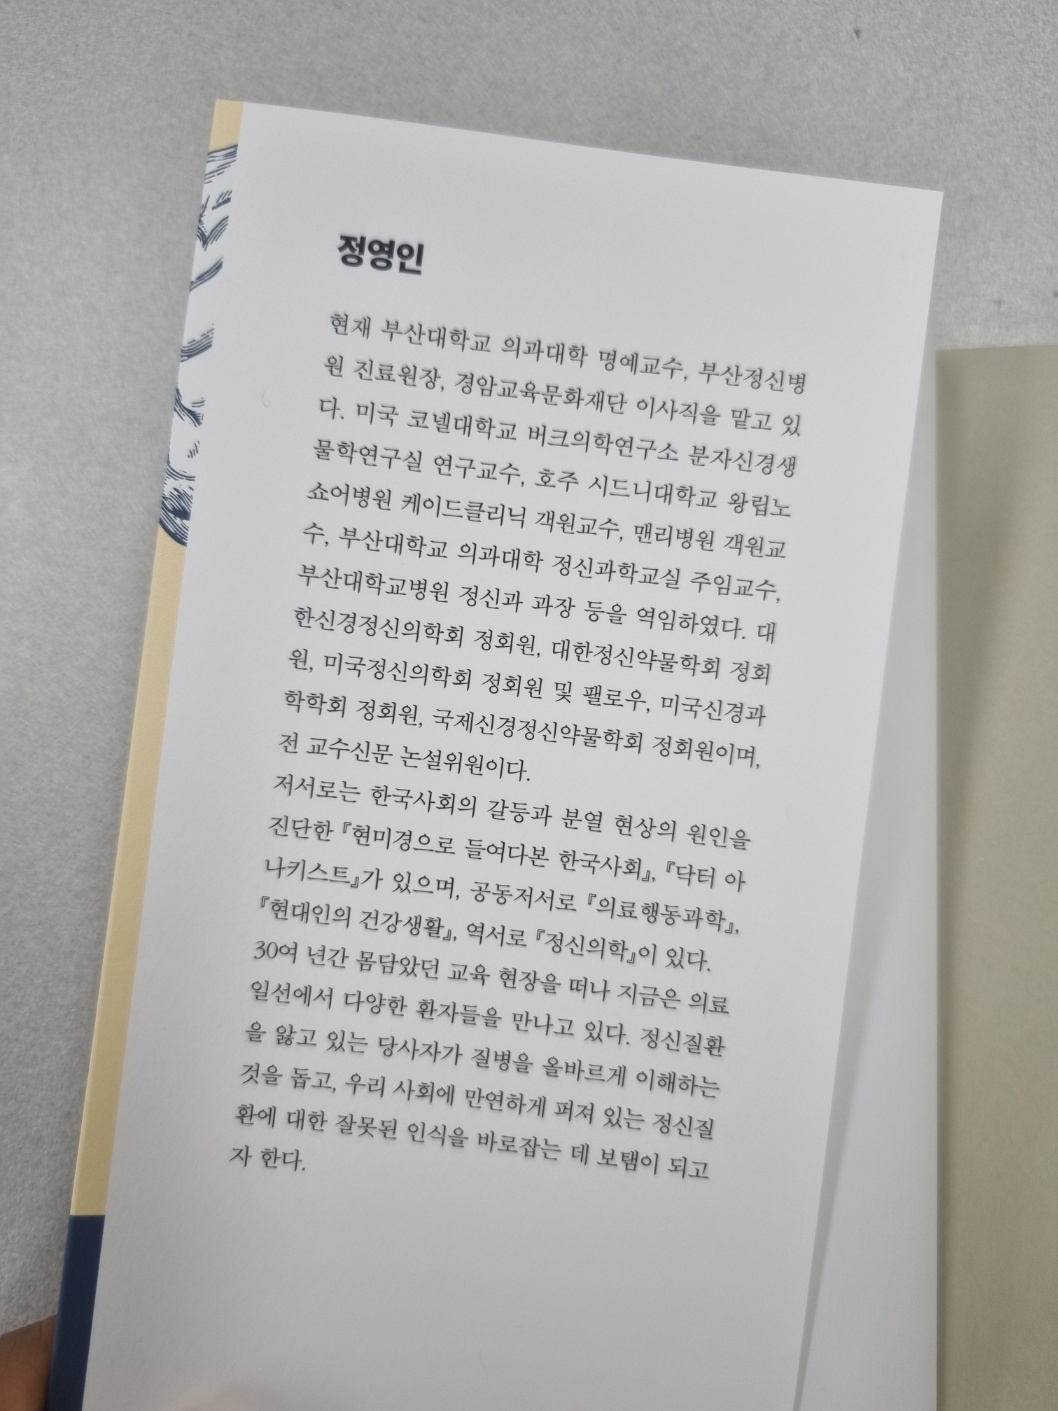 정영인
현재 부산대학교 의과대학 명예교수, 부산정신병
원 진료원장, 경암교육문화재단 이사직을 맡고 있
다. 미국 코넬대학교 버크의학연구소 분자신경생
물학연구실 연구교수, 호주 시드니대학교 왕립노
쇼어병원 케이드클리닉 객원교수, 맨리병원 객원교
수, 부산대학교 의과대학 정신과학교실 주임교수,
부산대학교병원 정신과 과장 등을 역임하였다. 대
한신경정신의학회 정회원, 대한정신약물학회 정회
원, 미국정신의학회 정회원 및 팰로우, 미국신경과
학학회 정회원, 국제신경정신약물학회 정회원이며,
전 교수신문 논설위원이다.
저서로는 한국사회의 갈등과 분열 현상의 원인을
진단한 『현미경으로 들여다본 한국사회』, 『닥터 아
나키스트』가 있으며, 공동저서로 『의료행동과학』,
『현대인의 건강생활』, 역서로 『정신의학』이 있다.
30여 년간 몸담았던 교육 현장을 떠나 지금은 의료
일선에서 다양한 환자들을 만나고 있다. 정신질환
을 앓고 있는 당사자가 질병을 올바르게 이해하는
것을 돕고, 우리 사회에 만연하게 퍼져 있는 정신질
환에 대한 잘못된 인식을 바로잡는 데 보탬이 되고
자 한다.